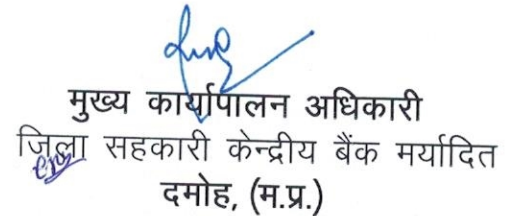 मुख्य कार्यापालन अधिकारी
जिला सहकारी केन्द्रीय बैंक मर्यादित
दमोह, (म.प्र.)